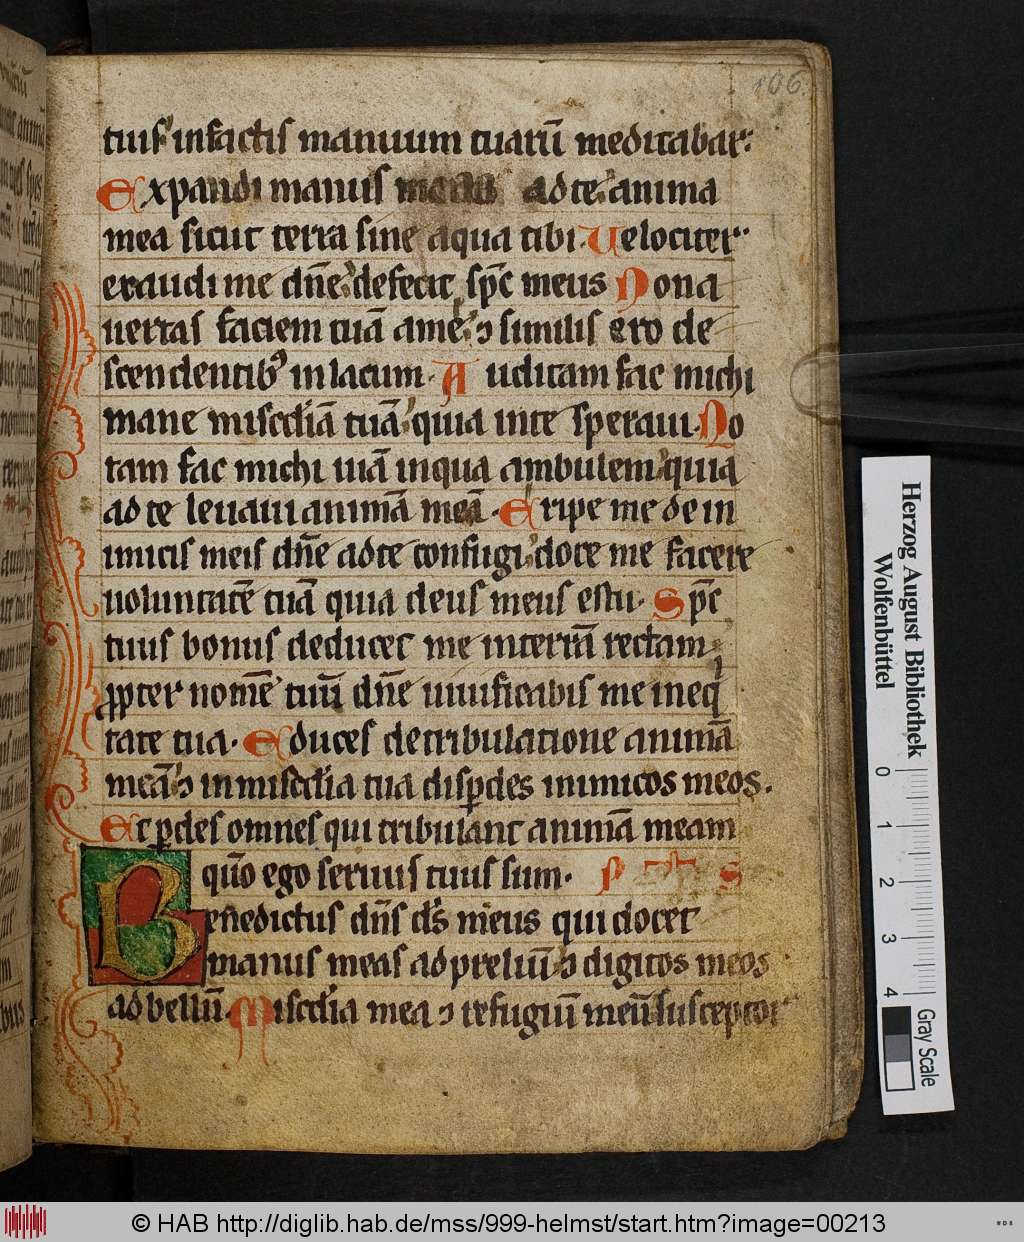 106
tuis' in factis manuum tuarū meditabar:
Expandi manus meas ad te anima
mea sicut terra sine aqua tibi. Velociter
exaudi me dn̄e defecit sp̄c meus Non a
vertas faciem tuā a me ɔ similis ero de
scendentibꝰ in lacum. Auditam fac michi
mane mis̄cdiā tuā quia in te speraui. No
tam fac michi uiā in qua ambulem quia
ad te leuaui animā meā. Eripe me de in
imicis meis dn̄e ad te confugi doce me facere
uoluntatē tuā quia deus meus es tu. Sp̄c
tuus bonus deducet me in terrā rectam
ꝓpter nomē tuū dn̄e uiuificabis me in eq̇
tate tua. Educes de tribulatione animā
meā ɔ in mis̄cdia tua disꝑdes inimicos meos.
Et ꝑdes omnes qui tribulant animā meam
qūo ego seruus tuus sum.
Benedictus dn̄s ds̄ meus qui docet
manus meas ad preliū ɔ digitos meos
ad bellū. Mis̄cdia mea ɔ refugiū meū susceptor
Herzog August Bibliothek
Wolfenbüttel
0 1 2 3 4
Gray Scale
© HAB http://diglib.hab.de/mss/999-helmst/start.htm?image=00213